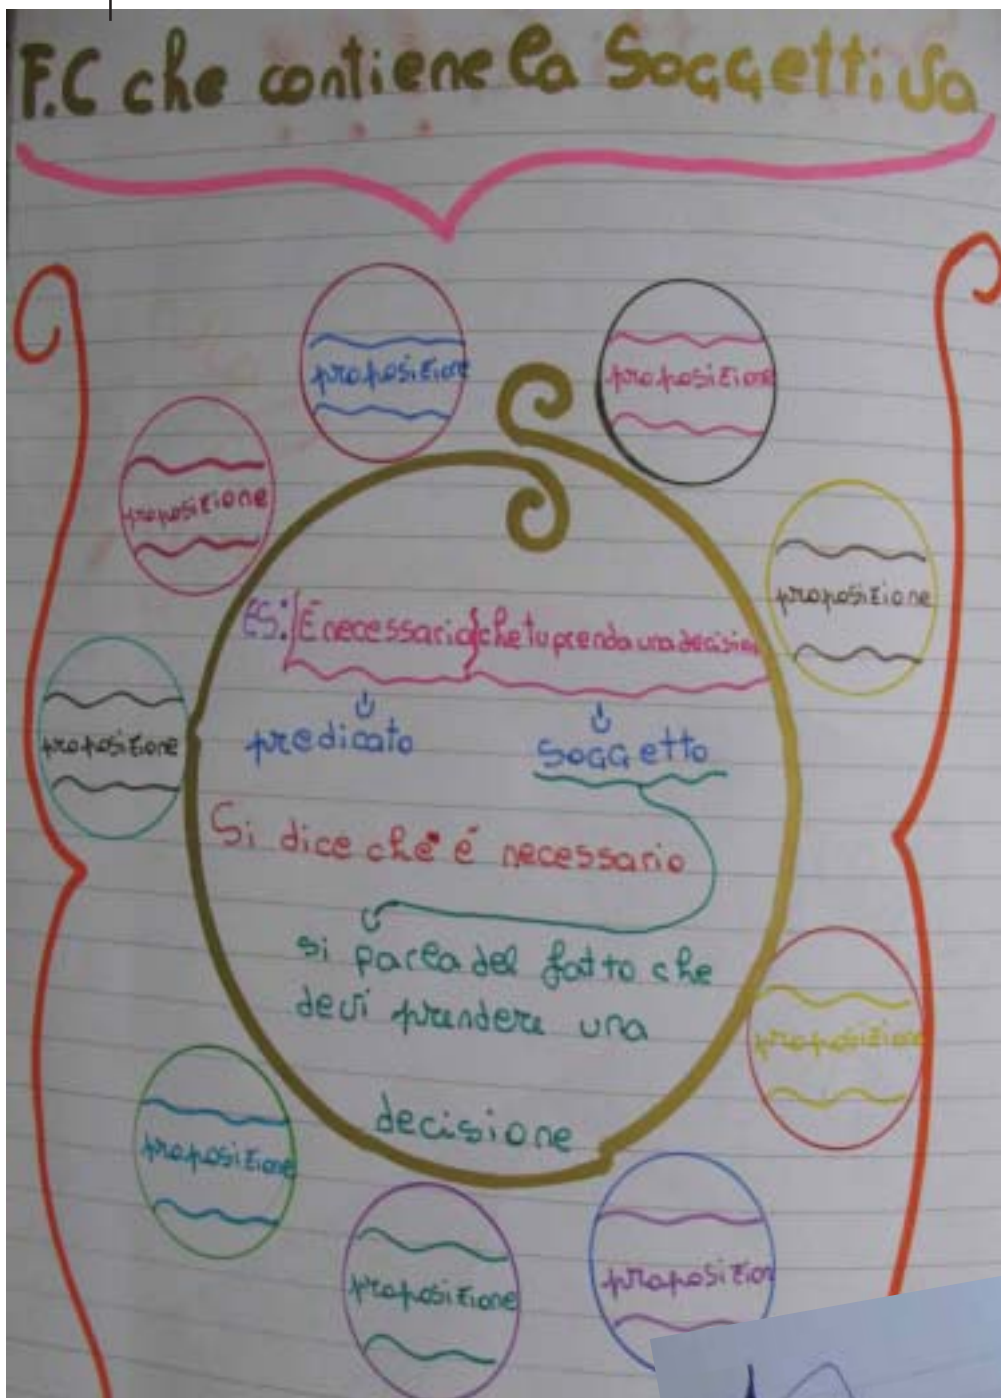 F.C che contiene la Soggettiva
proposizione
proposizione
proposizione
proposizione
proposizione
ES: È necessario che tu prenda una decision
predicato
soggetto
Si dice che è necessario
si parla del fatto che
devi prendere una
decisione
proposizione
proposizione
proposizione
proposizion